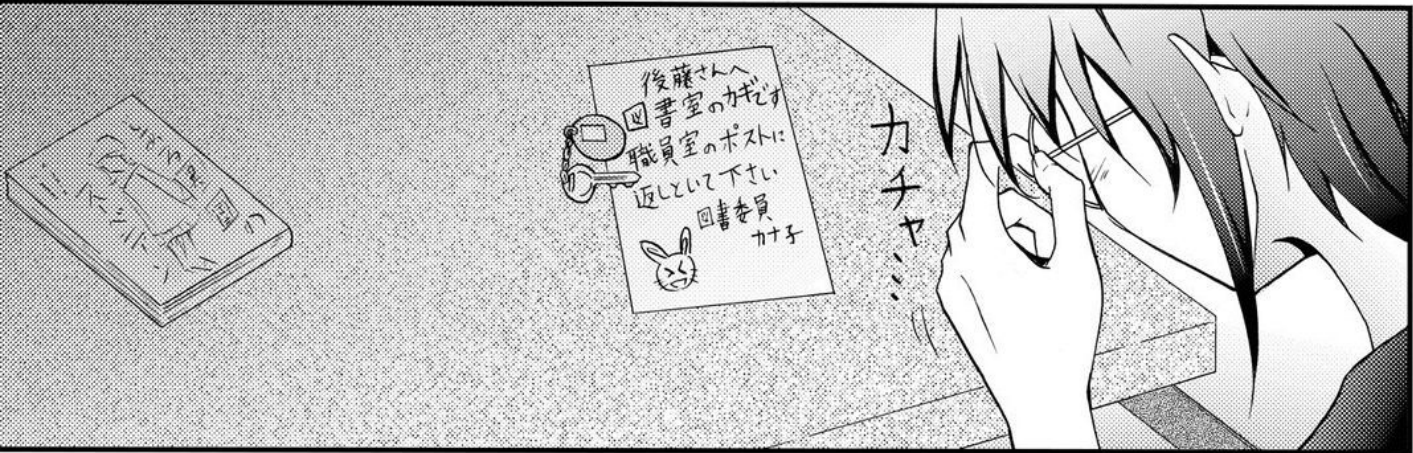 後藤さんへ
図書室のカギです
職員室のポストに
返しといて下さい
図書委員
カナ子
カチャ…